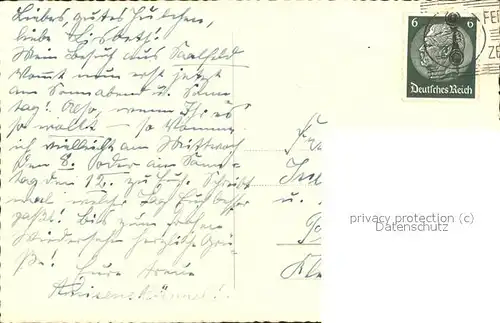 Liebes, gutes
liebe Lisbeth!
Mein Besuch aus Saalfeld
kommt nun erst jetzt
am Sonnabend u. Sonn
tag! Also, wenn Ihr es
so wollt – so komme
ich vielleicht am Mittwoch
den 8. oder am Sonn-
tag den 12. zu Euch. Schreibt
mal welcher Tag Euch besser
paßt! Bis zum frohen
Wiedersehn herzliche Grü-
ße! Eure treue
6 6
Deutsches Reich
FE
Fr
u.
privacy protection (c)
Datenschutz